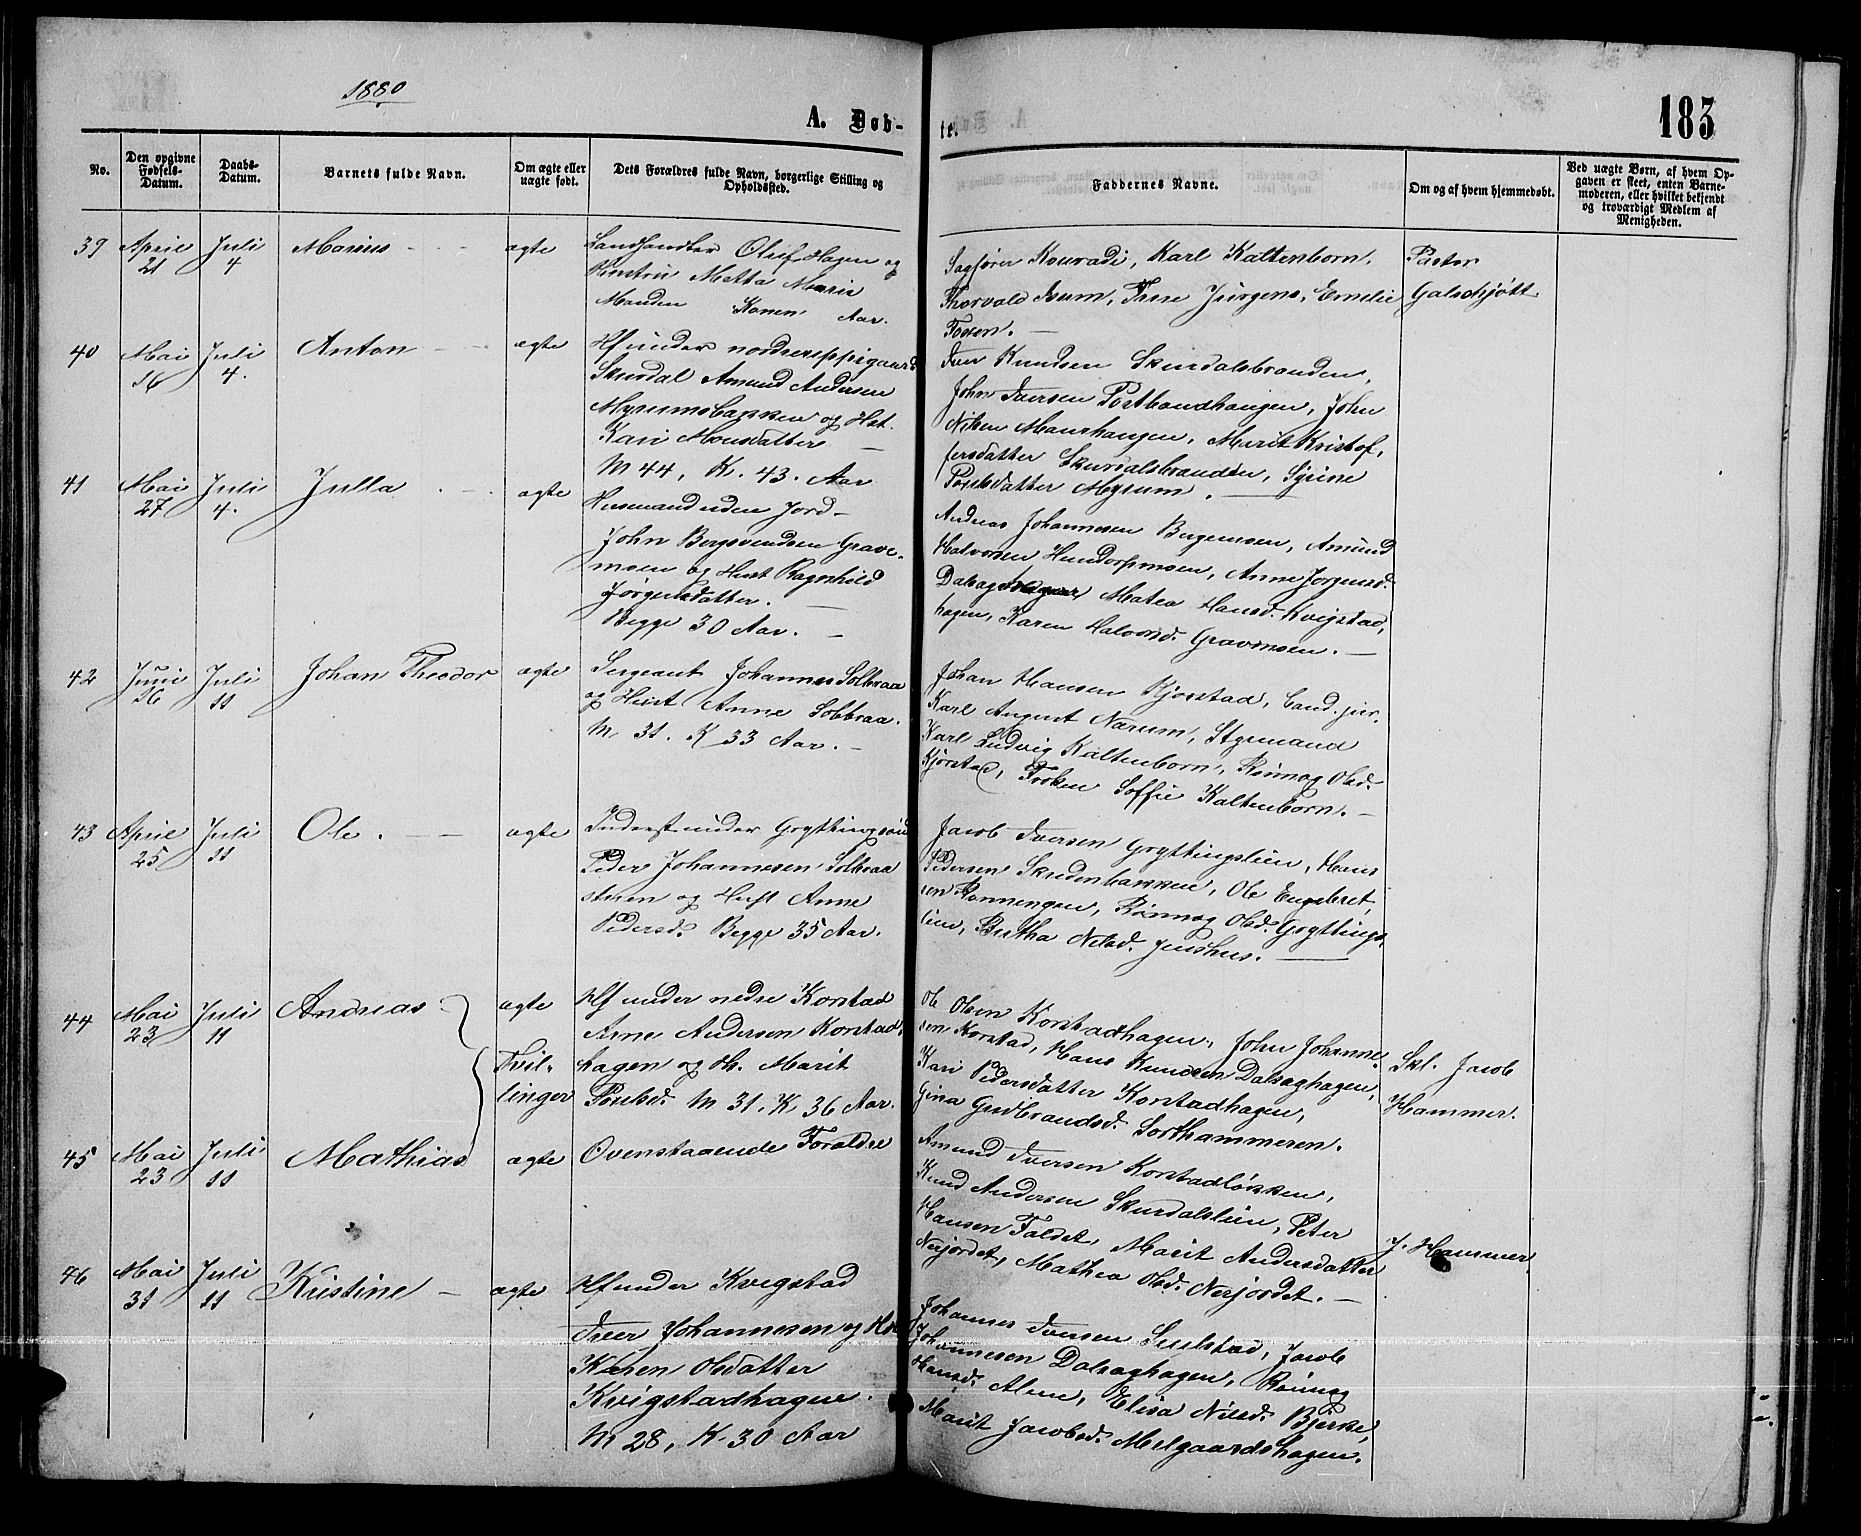 1880
A. Døb-
te.
183
No.
Den opgivne Fødsels-Datum.
Daabs-Datum.
Barnets fulde Navn.
Om ægte eller uægte født.
Dets Forældres fulde Navn, borgerlige Stilling og Opholdssted.
Faddernes Navne.
Om og af hvem hjemmedøbt.
Ved uægte Børn, af hvem Op-
gaven er skeet, enten Barne-
moderen, eller hvilket bekjendt
og troværdigt Medlem af
Menigheden.
39 April 21 Juli 4 Marius ægte
Landhandler Oluf Hagen og
Hustru Mathea Marie
Manden Konen Aar.
Sagfører Konradi, Karl Kaltenborn,
Thorvald Isum, Frue Jürgens, Emelie
Fossen.
Pastor
Galschjøtt
40 Mai 16 Juli 4. Anton ægte
Hf under nordre
Skurdal Amund Andersen
Myrumsbakken og Hst.
Kari Monsdatter
M 44, K. 43. Aar
Iver Knudsen Skurdalsbranden,
John Iversen Haugen, John
Nilsen Maurhaugen, Marit Kristof-
fersdatter Skurdalsbranden, Syrine
Poulsdatter Myrum.
41 Mai 27 Juli 4. Julla ægte
Husmand uden Jord
John Bergsvendsen Grave-
moen og Hust Ragnhild
Jørgensdatter.
Begge 30 Aar.
Andreas Johannesen Bergemoen, Amund
Halvorsen Hundorpmoen, Anne Jørgensd.
Dalsaghagen Matea Hansd. Kvigstad-
hagen, Karen Halvorsd. Gravemoen.
42 Juni 16 Juli 11 Johan Theodor ægte
Sergeant Johannes Solbraa
og Hust Anne Solbraa.
M 31. K 33 Aar.
Johan Hansen Kjørstad, Cand. jur.
Karl August Narum, Styrmand
Karl Ludvig Kaltenborn, Rønnog Olsd.
Kjørstad, Frøken Soffie Kaltenborn.
43 April 25 Juli 11 Ole. ægte
Inderst under Grytting
Peder Johannesen Solbraa
stuen og Hust Anne
Pedersd. Begge 35 Aar.
Jacob Iversen Gryttingslien, Hans
Pedersen Skredenbakken, Ole Engebret-
sen Ronningen, Rønnog Olsd. Gryttings-
lien, Bertha Nilsd. Jenshus.
44 Mai 23 Juli 11 Andreas ægte
Hf under nedre Korstad
Arne Andersen Korstad-
hagen og H. Marit
Poulsd. M 31, K 36 Aar.
Ole Olsen Korstadhagen, John Johanne-
sen Korstad, Hans Knudsen Dalsaghagen,
Kari Pedersdatter Korstadhagen,
Gina Gudbrandsd. Sorthammeren.
Skl. Jacob
Hammer.
Tvil-
linger
45 Mai 23 Juli 11 Mathias ægte Ovenstaaende Forældre
Amund Iversen Korstadløkken,
Knud Andersen Skurdalslien, Peter
Hansen Faldet, Marit Andersdatter
Nerjordet, Mathea Olsd. Nerjordet.
J. Hammer
46 Mai 31 Juli 11 Kristine ægte
Hf under Kvigstad
Iver Johannesen og
Karen Olsdatter
Kvigstadhagen.
M 28, K. 30 Aar
Johannes Iversen Sulstad, Jacob
Johannesen Dalsaghagen, Rønnog
Hansd. Alme, Elisa Nilsd. Bjerke,
Marit Jacobsd. Melgaardshagen.